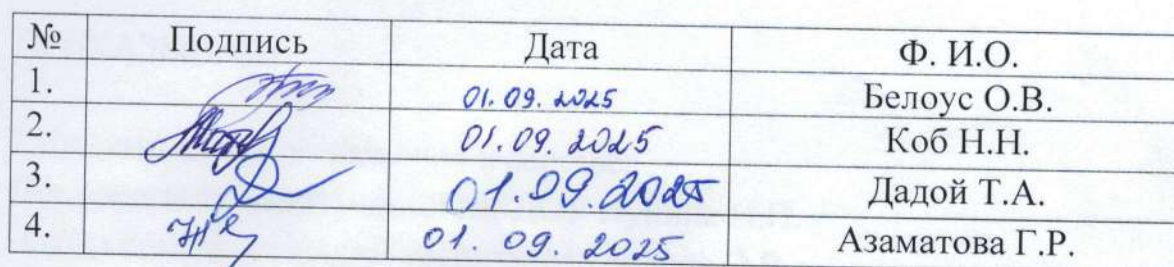 № Подпись Дата Ф. И.О.
1. 01.09.2025 Белоус О.В.
2. 01.09.2025 Коб Н.Н.
3. 01.09.2025 Дадой Т.А.
4. 01.09.2025 Азаматова Г.Р.